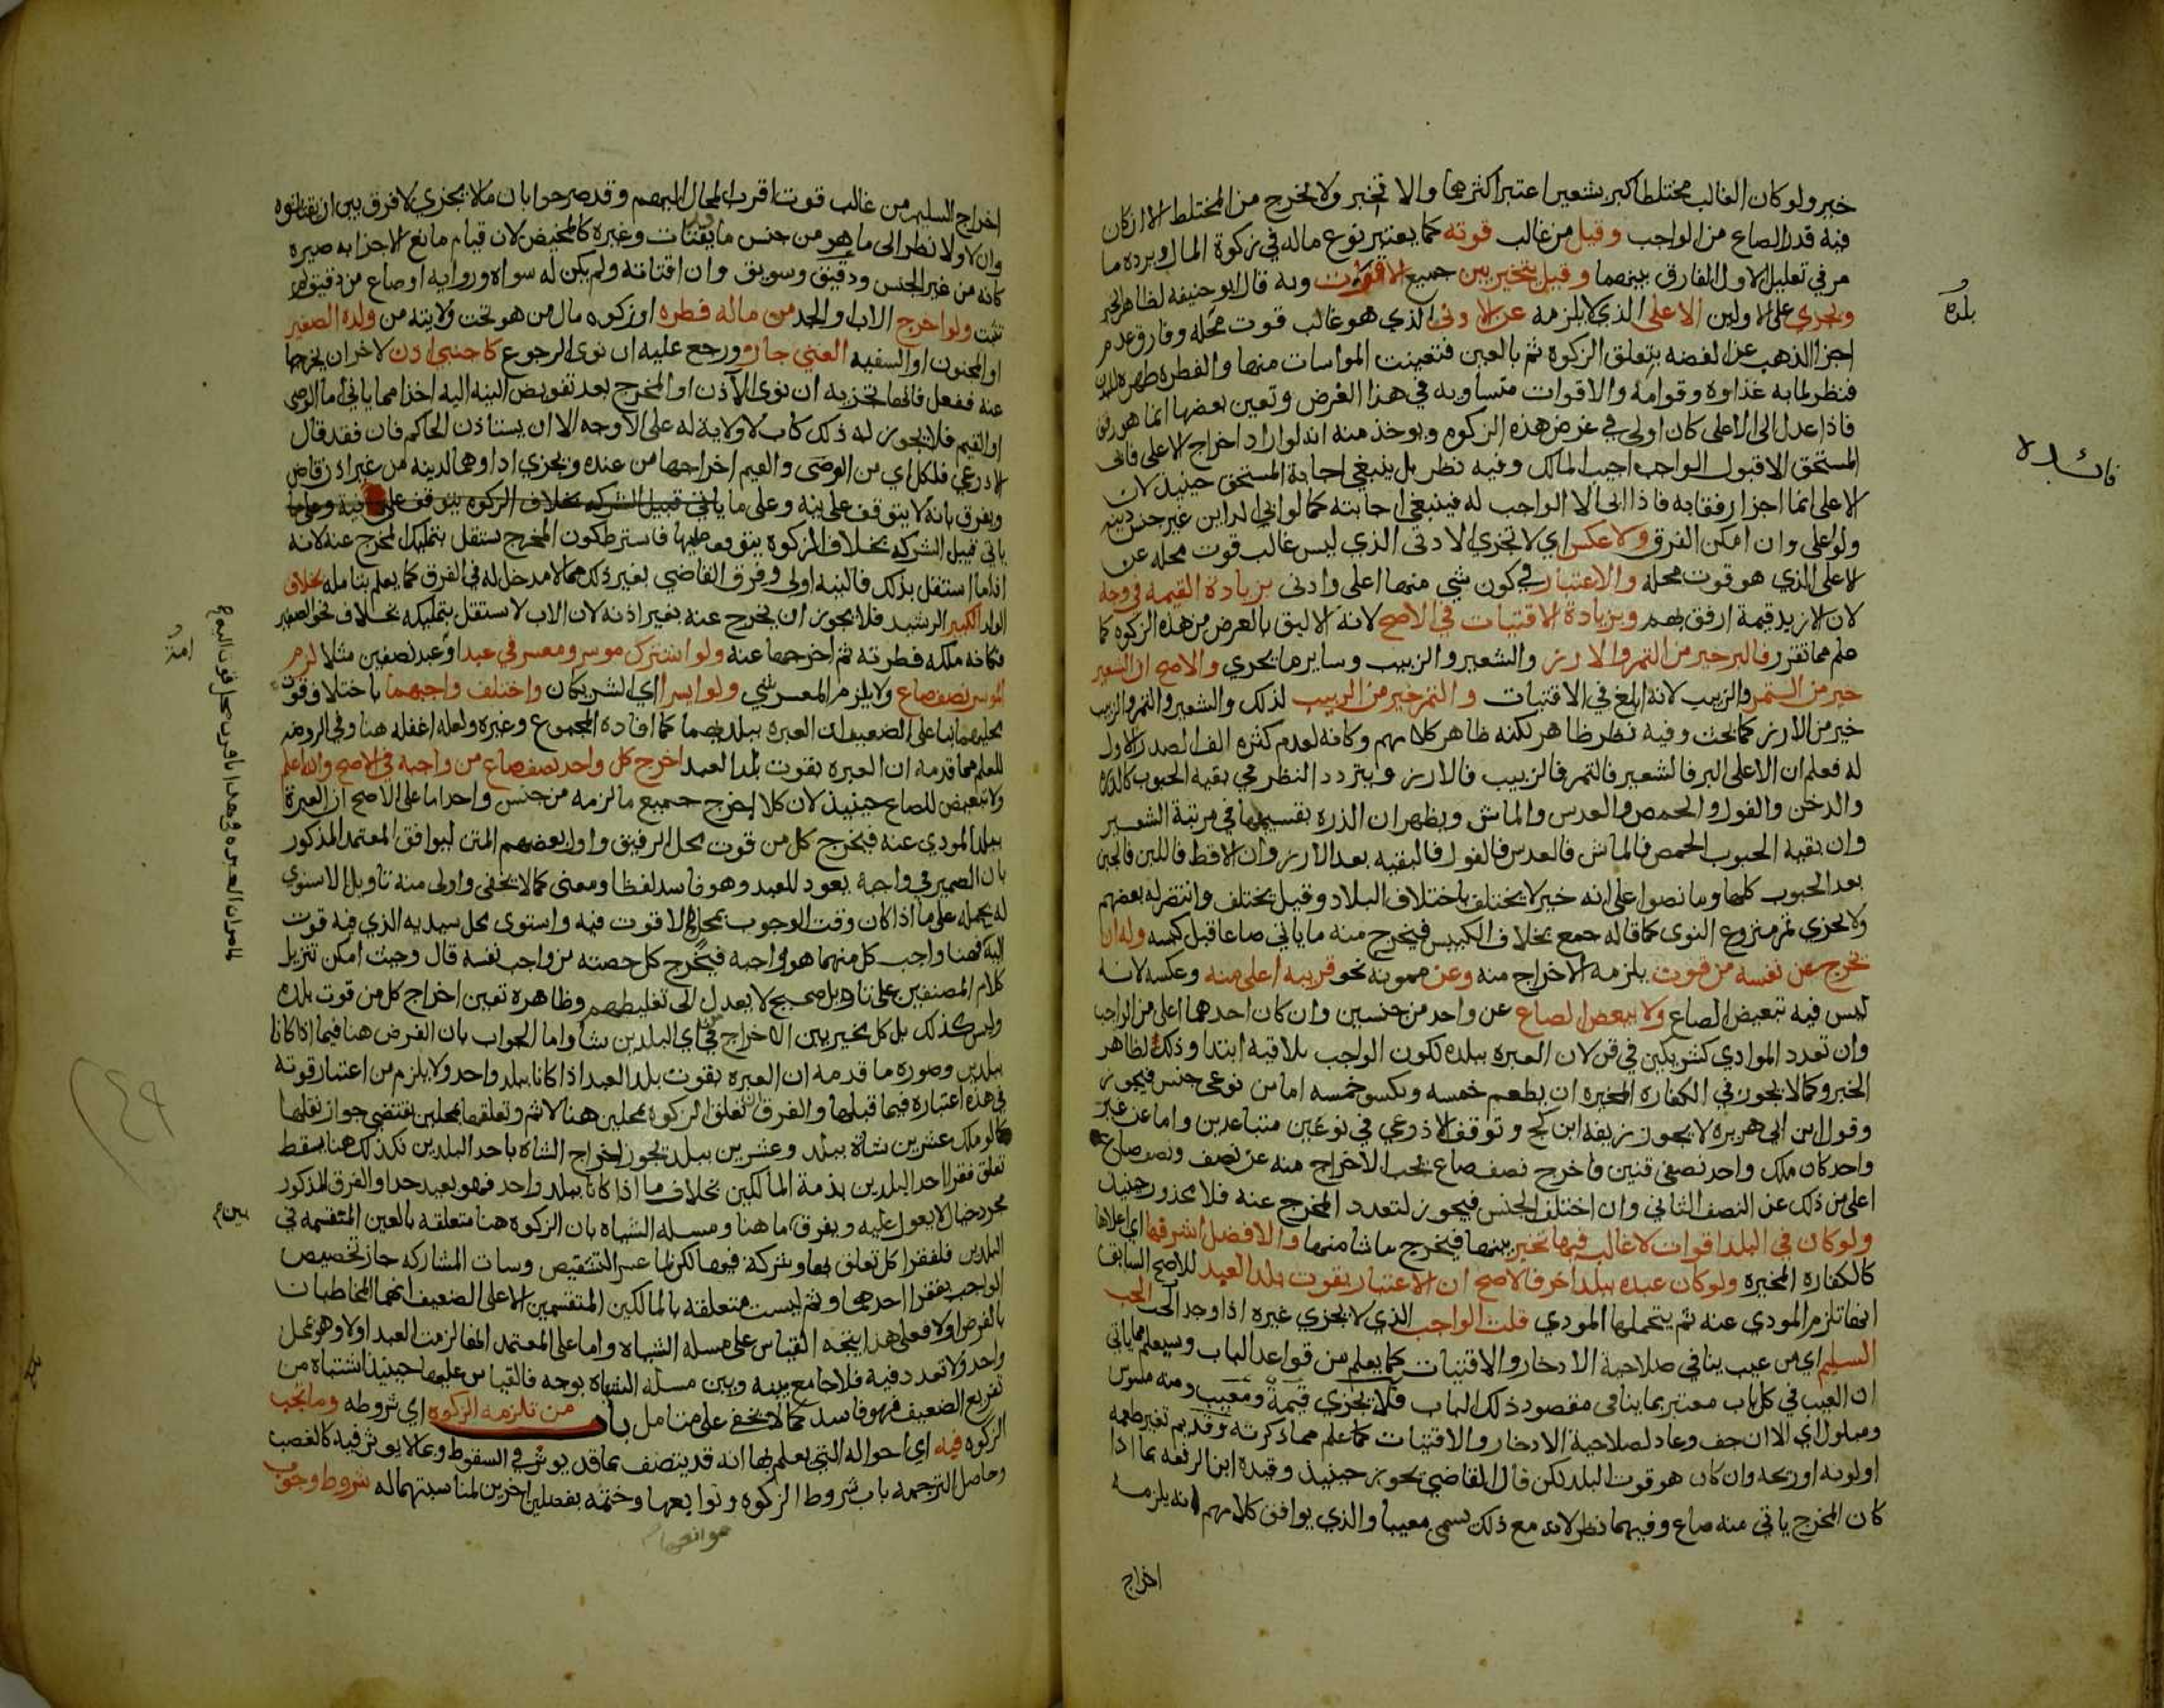 خير ولو كان الغالب مختلطا كبر بشعير اعتبر اكثرهما والا تخير ولا يخرج من المختلط الا ان كان
فيه قدر الصاع من الواجب وقيل من غالب قوته كما يعتبر نوع ماله في زكوة المال ويرده ما
مر في تعليل الاول الفارق بينهما وقيل يتخير بين جميع الاقوات وبه قال ابو حنيفه لظاهر الخبر
ويجزي على الاولين الاعلى الذي لا يلزمه عن الادنى الذي هو غالب قوت محله وفارق عدم
اجزا الذهب عن الفضه بتعلق الزكوة ثم بالعين فتعينت المواسات منها والفطره طهره للبدن
فنظر لما به غذاوه وقوامه والاقوات متساويه في هذا الغرض وتعين بعضها انما هو رفق
فاذا عدل الى الاعلى كان اولى في غرض هذه الزكوه ويوخذ منه انه لو اراد اخراج الاعلى فابى
المستحق الا قبول الواجب اجيب المالك وفيه نظر بل ينبغي اجابة المستحق حينيذ لان
الاعلى انما اجزا رفقا به فاذا ابى الا الواجب له فينبغي اجابته كما لو ابى الداين غير جنس دينه
ولو اعلى وان امكن الفرق ولا عكس اي لا تجزي الادنى الذي ليس غالب قوت محله عن
الاعلى الذي هو قوت محله والاعتبار في كون شي منها اعلى وادنى بزيادة القيمه في وجه
لان الازيد قيمة ارفق بهم وبزيادة الاقتيات في الاصح لانه الاليق بالغرض من هذه الزكوه كما
علم مما تقرر فالبر خير من التمر والارز والشعير والزبيب وساير ما يجزي والاصح ان الشعير
خير من التمر والزبيب لانه ابلغ في الاقتيات والتمر خير من الزبيب لذلك والشعير والتمر والزبيب
خير من الارز كما بحث وفيه نظر ظاهر لكنه ظاهر كلامهم وكانه لعدم كثره الف الصدر الاول
له فعلم ان الاعلى البر فالشعير فالتمر فالزبيب فالارز ويتردد النظر في بقيه الحبوب كالذره
والدخن والفول والحمص والعدس والماش ويظهر ان الذره بقسيمها في مرتبة الشعير
وان بقيه الحبوب الحمص فالماش فالعدس فالفول فالبقيه بعد الارز وان الاقط فاللبن فالجبن
بعد الحبوب كلها وما نصوا على انه خير لا يختلف باختلاف البلاد وقيل يختلف وانتصر له بعضهم
ولا يجزي تمر منزوع النوى كما قاله جمع بخلاف الكبيس فيخرج منه ما ياتي صاعا قبل كبسه وله ان
يخرج عن نفسه من قوت يلزمه الاخراج منه وعن ممونه نحو قريبه اعلى منه وعكسه لانه
ليس فيه تبعيض الصاع ولا يبعض الصاع عن واحد من جنسين وان كان احدهما اعلى من الواجب
وان تعدد المودي كشريكين في قن لان العبره ببلده لكون الواجب يلاقيه ابتدا وذلك لظاهر
الخبر وكما لا يجوز في الكفاره المخيره ان يطعم خمسه ويكسو خمسه اما من نوعي جنس فيجوز
وقول ابن ابي هريره لا يجوز زيفه ابن كج وتوقف الاذرعي في نوعين متباعدين واما عن غير
واحد كان ملك واحد نصفي قنين فاخرج نصف صاع يجب الاخراج منه عن نصف ونصف صاع
اعلى من ذلك عن النصف الثاني وان اختلف الجنس فيجوز لتعدد المخرج عنه فلا محذور حينيذ
ولو كان في البلد اقوات لا غالب فيها تخير بينهما فيخرج ما شا منها والافضل اشرفها اي اعلاها
كالكفاره المخيره ولو كان عبده ببلد اخر فالاصح ان الاعتبار بقوت بلد العبد للاصح السابق
انها تلزم المودي عنه ثم يتحملها المودي قلت الواجب الذي لا يجزي غيره اذا وجد الحب الحب
السليم اي من عيب ينافي صلاحية الادخار والاقتيات كما يعلم من قواعد الباب وسيعلم مما ياتي
ان العيب في كل باب معتبر بما ينافي مقصود ذلك الباب فلا يجزي قيمة ومعيب ومنه مسوس
ومبلول اي الا ان جف وعاد لصلاحية الادخار والاقتيات كما علم مما ذكرته وقديم تغير طعمه
او لونه او ريحه وان كان هو قوت البلد لكن قال القاضي يجوز حينيذ وقيده ابن الرفعه بما اذا
كان المخرج ياتي منه صاع وفيهما نظر لانه مع ذلك يسمى معيبا والذي يوافق كلامهم انه يلزمه
اخراج
بلده
فائده
اخراج السليم من غالب قوت اقرب المحال اليهم وقد صرحوا بان ما لا يجزي لا فرق بين ان يقتاتوه
وان لا ولا نظر الى ما هو من جنس ما يقتات وغيره كالمخيض لان قيام مانع الاجزا به صيره
كانه من غير الجنس ودقيق وسويق وان اقتاته ولم يكن له سواه ورواية او صاع من دقيق لم
تثبت ولو اخرج الاب او الجد من ماله فطره او زكوه مال من هو تحت ولايته من ولده الصغير
او المجنون او السفيه الغني جاز ورجع عليه ان نوى الرجوع كاجنبي اذن لاخر ان يخرجها
عنه ففعل فانها تجزيه ان نوى الآذن او المخرج بعد تفويض النيه اليه اخذا مما ياتي اما الوصي
او القيم فلا يجوز له ذلك كاب لا ولاية له على الاوجه الا ان يستاذن الحاكم فان فقد قال
الاذرعي فلكل اي من الوصي والقيم اخراجها من عنده ويجزي اداوهما لدينه من غير اذن قاض
ويفرق بانه لا يتوقف على نيه وعلى ما ياتي قبيل الشركه بخلاف الزكوه يتوقف على نية وعلى ما
ياتي قبيل الشركه بخلاف الزكوه يتوقف عليها فاشترط كون المخرج يستقل بتمليك المخرج عنه لانه
اذا ما استقل بذلك فالنيه اولى وفرق القاضي بغير ذلك مما لا مدخل له في الفرق كما يعلم بتامله بخلاف
الولد الكبير الرشيد فلا يجوز ان يخرج عنه بغير اذنه لان الاب لا يستقل بتمليكه بخلاف نحو الصغير
فكانه ملكه فطرته ثم اخرجها عنه ولو اشترك موسر ومعسر في عبد او عبد نصفين مثلا لزم
الموسر نصف صاع ولا يلزم المعسر شي ولو ايسرا اي الشريكان واختلف واجبهما باختلاف قوت
محليهما بنا على الضعيف ان العبره ببلديهما كما افاده المجموع وغيره ولعله اغفله هنا وفي الروضه
للعلم مما قدمه ان العبره بقوت بلد العبد اخرج كل واحد نصف صاع من واجبه في الاصح والله اعلم
ولا تبعيض للصاع حينيذ لان كلا اخرج جميع ما لزمه من جنس واحد اما على الاصح ان العبرة
ببلد المودي عنه فيخرج كل من قوت محل الرقيق واول بعضهم المتن ليوافق المعتمد المذكور
بان الضمير في واجبه يعود للعبد وهو فاسد لفظا ومعنى كما لا يخفى واولى منه تاويل الاسنوي
له بحمله على ما اذا كان وقت الوجوب بمحل لا قوت فيه واستوى محل سيديه الذي فيه قوت
اليه فهنا واجب كل منهما هو واجبه فيخرج كل حصته من واجب نفسه قال وحيث امكن تنزيل
كلام المصنفين على تاويل صحيح لا يعدل الى تغليطهم وظاهره تعين اخراج كل من قوت بلده
وليس كذلك بل كل مخير بين الاخراج من اي البلدين شا واما الجواب بان الفرض هنا فيما اذا كانا
ببلدين وصوره ما قدمه ان العبره بقوت بلد العبد اذا كانا ببلد واحد ولا يلزم من اعتبار قوته
في هذه اعتباره فيما قبلها والفرق ان تعلق الزكوه بمحلين هنا لا ثم وتعلقها بمحلين يقتضي جواز نقلها
كما لو ملك عشرين شاة ببلد وعشرين ببلد يجوز اخراج الشاه باحد البلدين فكذلك هنا يسقط
تعلق فقرا احد البلدين بذمة المالكين بخلاف ما اذا كانا ببلد واحد فهو بعيد جدا والفرق المذكور
مجرد خيال لا يعول عليه ويفرق ما هنا ومسله الشياه بان الزكوه هنا متعلقه بالعين المنقسمه في
البلدين فلفقرا كل تعلق بها وشركة فيها لكن لما عسر التشقيص وسات المشاركه جاز تخصيص
الواجب بفقرا احدهما وثم ليست متعلقه بالمالكين المنقسمين الا على الضعيف انهما المخاطبان
بالفرض اولا فعلى هذا يتجه القياس على مسله الشياه واما على المعتمد انها لزمت العبد اولا وهو بمحل
واحد ولا تعدد فيه فلا جامع بينه وبين مسله الشياه بوجه فالقياس عليها حينيذ اشتباه من
تفريع الضعيف فهو فاسد كما لا يخفى على متامل باب من تلزمه الزكوه اي شروطه وما تجب
الزكوه فيه اي احواله التي يعلم بها انه قد يتصف بما قد يوثر في السقوط وما لا يوثر فيه كالغصب
وحاصل الترجمه باب شروط الزكوه وتوابعها وختمه بفصلين اخرين لمناسبتهما له شروط وجوب
بين